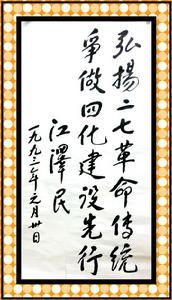 弘揚二七革命传统
爭做四化建设先行
江澤民
一九九三年元月卅日